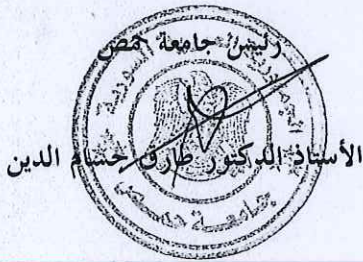 رئيس جامعة حمص
الأستاذ الدكتور طارق حسام الدين
الجمهورية العربية السورية
جامعة حمص